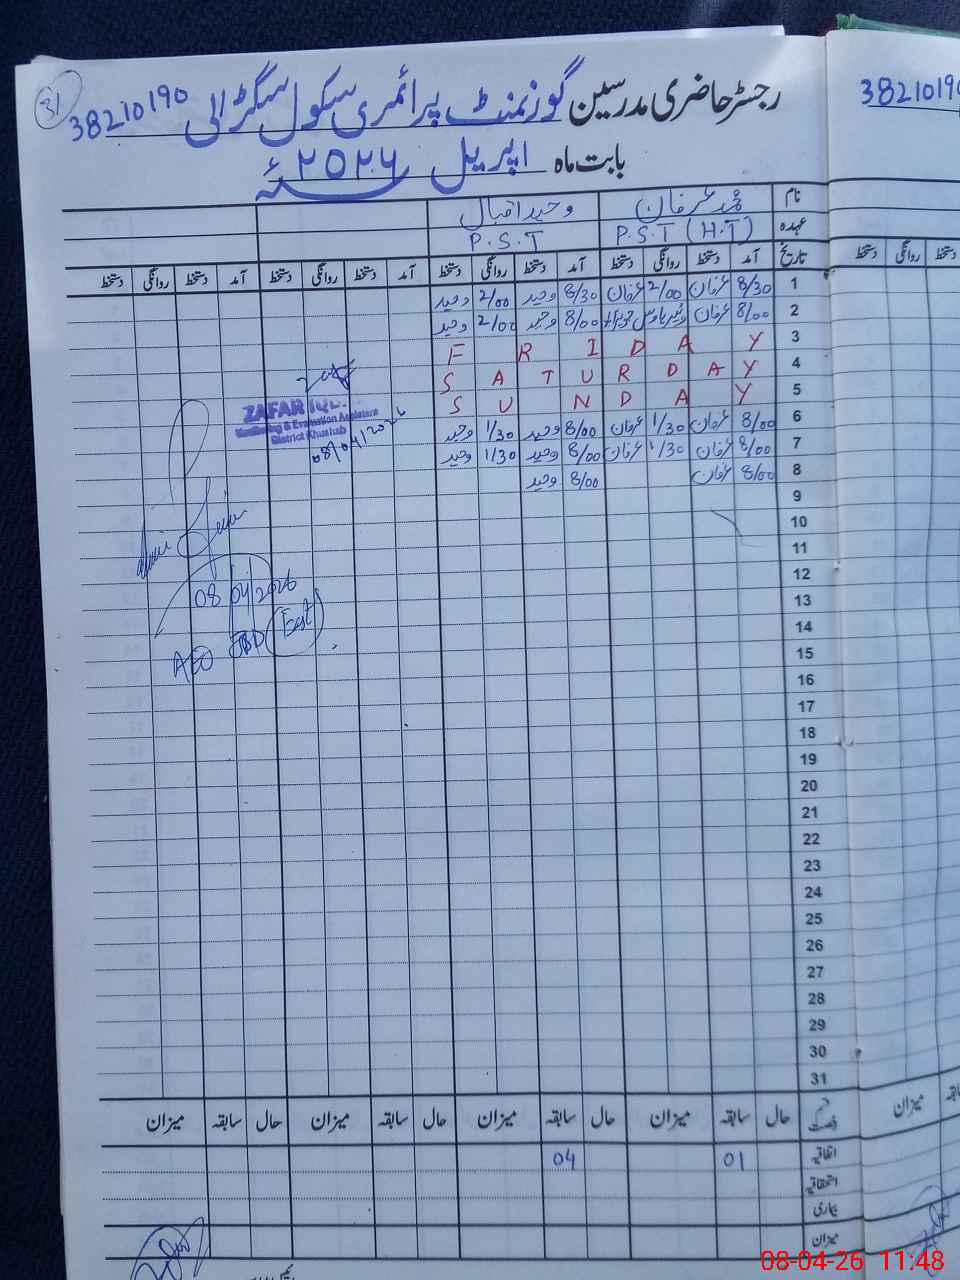 31
38210190
رجسٹر حاضری مدرسین گورنمنٹ پرائمری سکول سگرالی 38210190
بابت ماہ اپریل ۲۰۲۶ء
نام محمد عرفان وحید اقبال
عہدہ P.S.T (H.T) P.S.T
تاریخ آمد دستخط روانگی دستخط آمد دستخط روانگی دستخط آمد دستخط روانگی دستخط آمد دستخط روانگی دستخط
1 8/30 عرفان 2/00 عرفان 8/30 وحید 2/00 وحید
2 8/00 عرفان 8/00 وحید 2/00 وحید
3 F R I D A Y
4 S A T U R D A Y
5 S U N D A Y
6 8/00 عرفان 1/30 عرفان 8/00 وحید 1/30 وحید
7 8/00 عرفان 1/30 عرفان 8/00 وحید 1/30 وحید
8 8/00 عرفان 8/00 وحید
ZAFAR IQBAL
Monitoring & Evaluation Assistant
District Khushab
08/04/2026
9
10
11
12
08/04/2026
13
14
AEO JBD (East)
15
16
17
18
19
20
21
22
23
24
25
26
27
28
29
30
31
حال سابقہ میزان حال سابقہ میزان حال سابقہ میزان حال سابقہ میزان
اتفاقیہ 01 04
استحقاقیہ
بیماری
میزان
دستخط روانگی دستخط
میزان
08-04-26 11:48